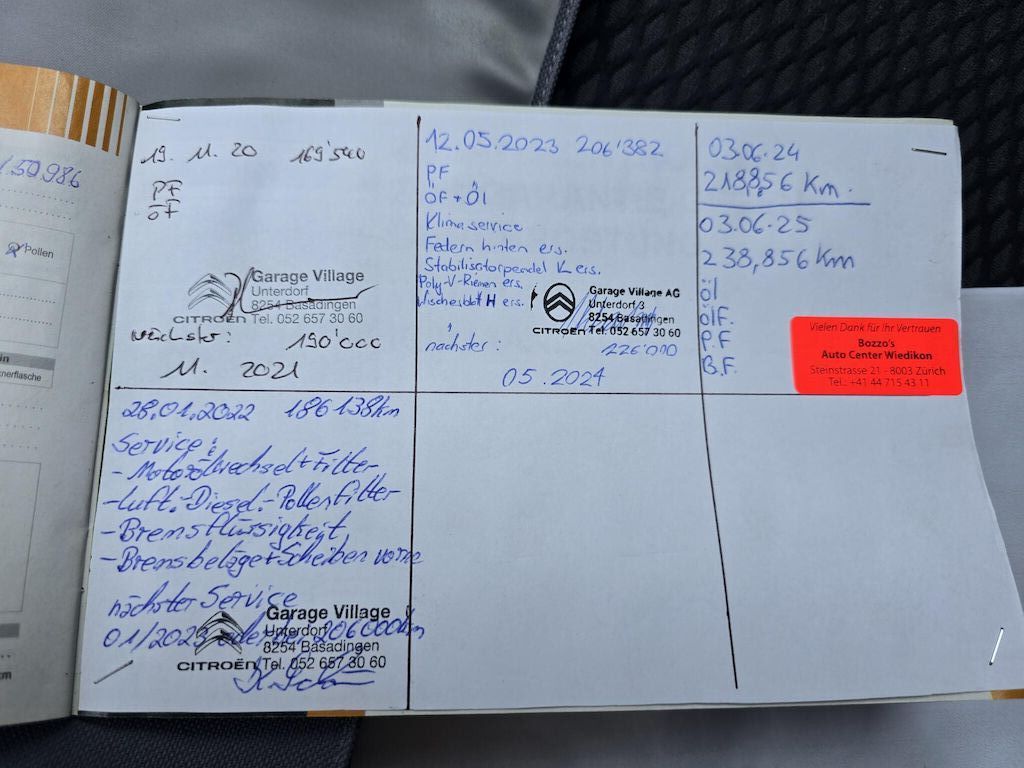 150986
Pollen
19. 11. 20 169'540
PF
ÖF
Garage Village
Unterdorf
8254 Basadingen
CITROËN Tel. 052 657 30 60
nächster: 190'000
11. 2021
28.01.2022 186138km
Service:
- Motorölwechsel + Filter
- Luft.-Diesel.-Pollenfilter
- Bremsflüssigkeit
- Bremsbeläge + Scheiben vorne
nächster Service
01/2023 oder bei 206000km
Garage Village
Unterdorf
8254 Basadingen
CITROËN Tel. 052 657 30 60
12.05.2023 206'382
PF
ÖF + Öl
Klimaservice
Federn hinten ers.
Stabilisatorpendel V ers.
Poly-V-Riemen ers.
Wischerblatt H ers.
Garage Village AG
Unterdorf 3
8254 Basadingen
CITROËN Tel. 052 657 30 60
nächster: 226'010
05.2024
03.06.24
218,856 Km.
03.06.25
238,856 Km
Öl
ÖlF.
P.F
B.F.
Vielen Dank für Ihr Vertrauen
Bozzo's
Auto Center Wiedikon
Steinstrasse 21 - 8003 Zürich
Tel.: +41 44 715 43 11